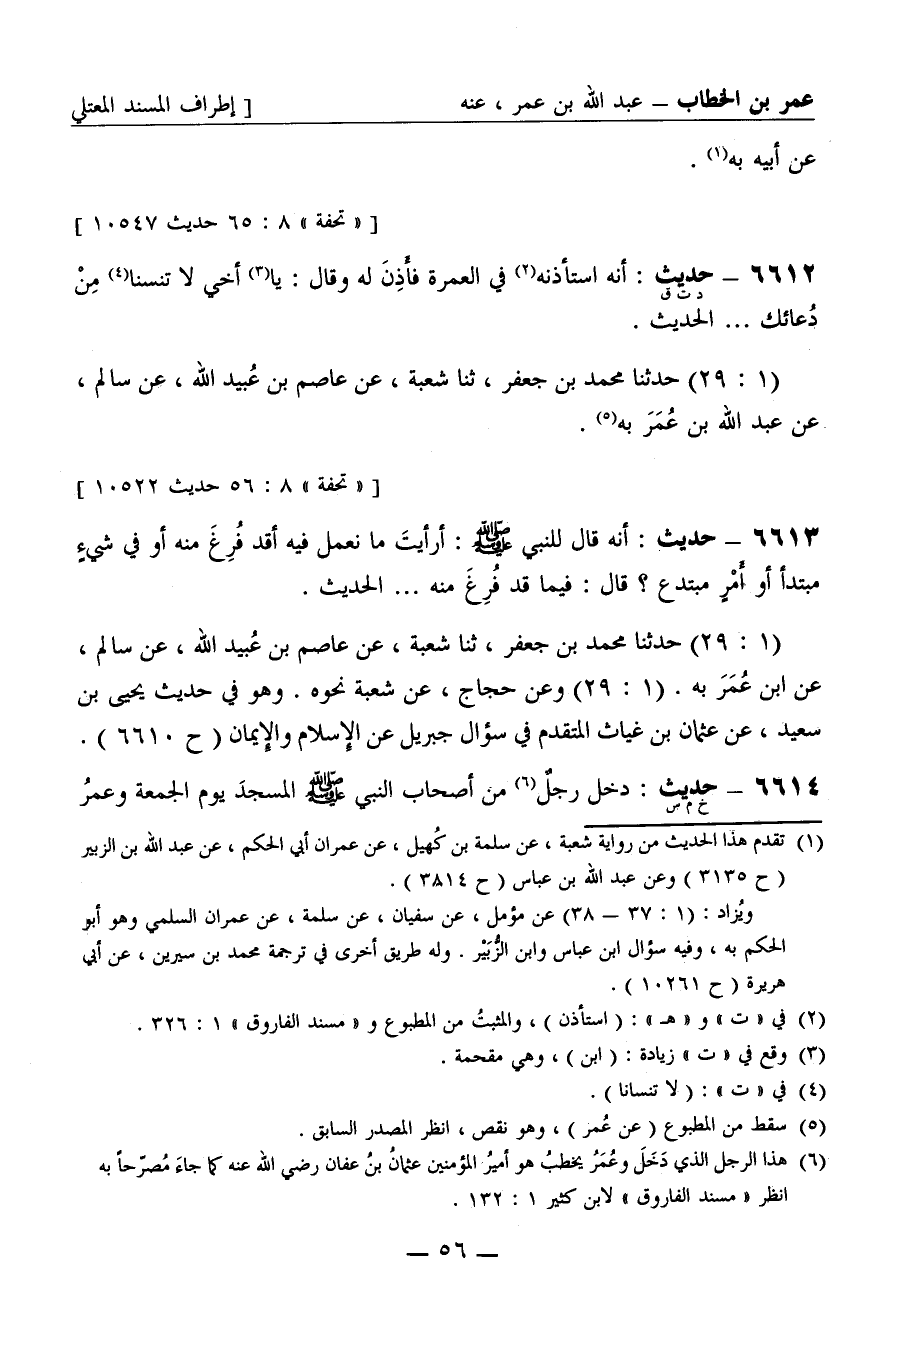 عمر بن الخطاب – عبد الله بن عمر ، عنه [ إطراف المسند المعتلي
عن أبيه به(١) .
[ « تحفة » ٨ : ٦٥ حديث ١٠٥٤٧ ]
٦٦١٢ – حديث : أنه استأذنه(٢) في العمرة فأَذِنَ له وقال : يا(٣) أخي لا تنسنا(٤) مِنْ
د ت ق
دُعائك ... الحديث .
(١ : ٢٩) حدثنا محمد بن جعفر ، ثنا شعبة ، عن عاصم بن عُبيد الله ، عن سالم ،
عن عبد الله بن عُمَرَ به(٥) .
[ « تحفة » ٨ : ٥٦ حديث ١٠٥٢٢ ]
٦٦١٣ – حديث : أنه قال للنبي ﷺ : أرأيتَ ما نعمل فيه أقد فُرِغَ منه أو في شيءٍ
مبتدأ أو أَمْرٍ مبتدع ؟ قال : فيما قد فُرِغَ منه ... الحديث .
(١ : ٢٩) حدثنا محمد بن جعفر ، ثنا شعبة ، عن عاصم بن عُبيد الله ، عن سالم ،
عن ابن عُمَرَ به . (١ : ٢٩) وعن حجاج ، عن شعبة نحوه . وهو في حديث يحيى بن
سعيد ، عن عثمان بن غياث المتقدم في سؤال جبريل عن الإسلام والإيمان ( ح ٦٦١٠ ) .
٦٦١٤ – حديث : دخل رجلٌ(٦) من أصحاب النبي ﷺ المسجدَ يوم الجمعة وعمرُ
خ م س
(١) تقدم هذا الحديث من رواية شعبة ، عن سلمة بن كُهيل ، عن عمران أبي الحكم ، عن عبد الله بن الزبير
( ح ٣١٣٥ ) وعن عبد الله بن عباس ( ح ٣٨١٤ ) .
ويُزاد : (١ : ٣٧ – ٣٨) عن مؤمل ، عن سفيان ، عن سلمة ، عن عمران السلمي وهو أبو
الحكم به ، وفيه سؤال ابن عباس وابن الزُّبَيْر . وله طريق أخرى في ترجمة محمد بن سيرين ، عن أبي
هريرة ( ح ١٠٢٦١ ) .
(٢) في « ت » و « هـ » : ( استأذن ) ، والمثبتُ من المطبوع و « مسند الفاروق » ١ : ٣٢٦ .
(٣) وقع في « ت » زيادة : ( ابن ) ، وهي مقحمة .
(٤) في « ت » : ( لا تنسانا ) .
(٥) سقط من المطبوع ( عن عُمر ) ، وهو نقص ، انظر المصدر السابق .
(٦) هذا الرجل الذي دَخَلَ وعُمَرُ يخطبُ هو أميرُ المؤمنين عثمانُ بنُ عفان رضي الله عنه كما جاءَ مُصرّحاً به
انظر « مسند الفاروق » لابن كثير ١ : ١٣٢ .
– ٥٦ –